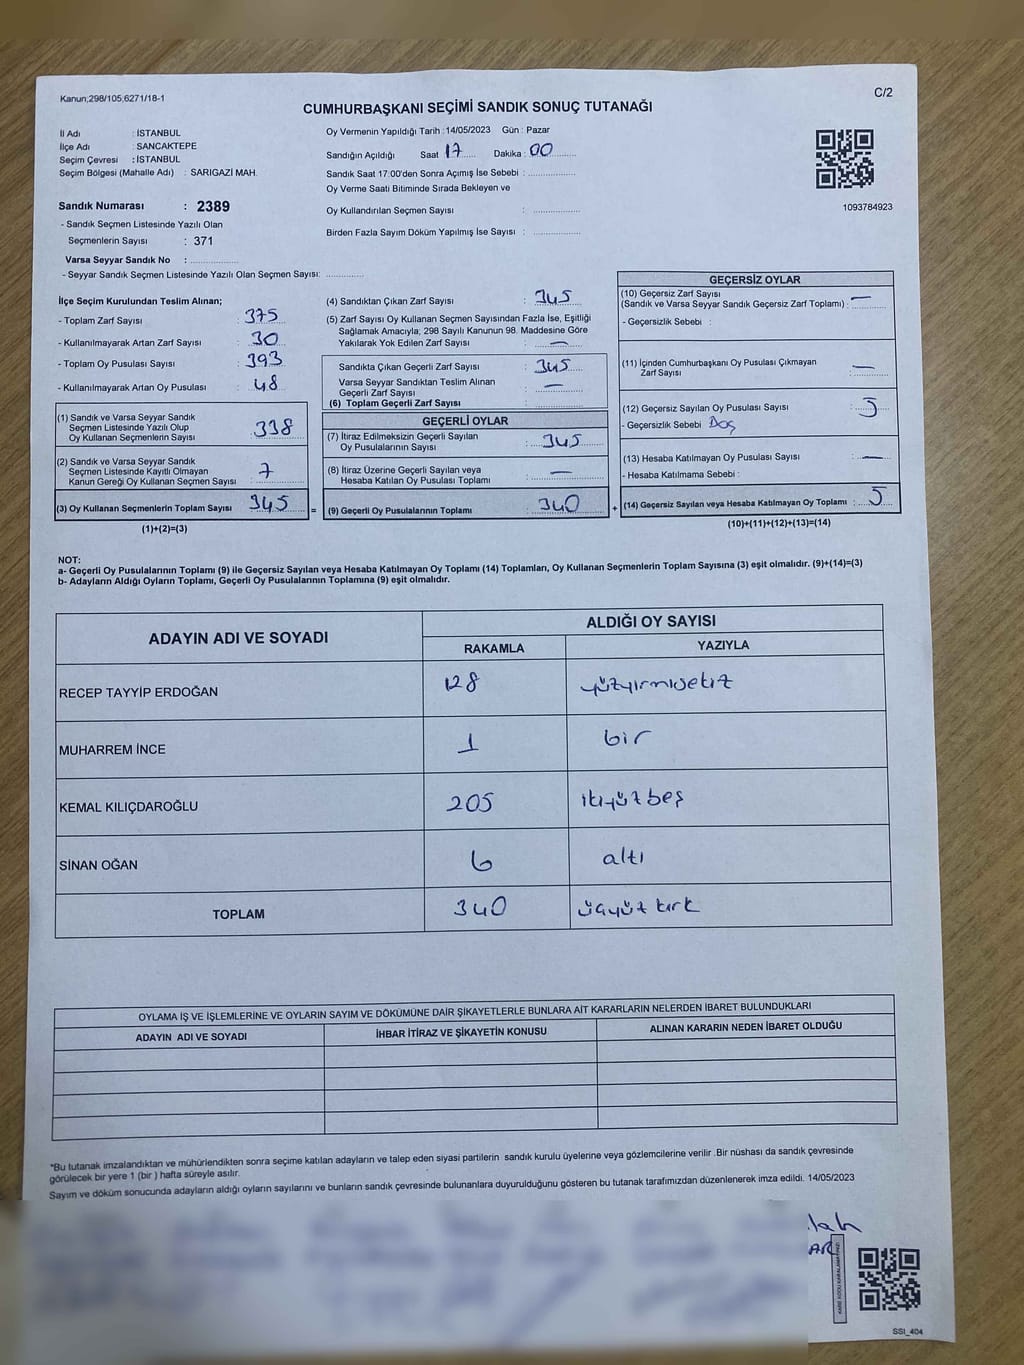 Kanun;298/105;6271/18-1
C/2
CUMHURBAŞKANI SEÇİMİ SANDIK SONUÇ TUTANAĞI
İl Adı : İSTANBUL
İlçe Adı : SANCAKTEPE
Seçim Çevresi : İSTANBUL
Seçim Bölgesi (Mahalle Adı) : SARIGAZİ MAH.
Sandık Numarası : 2389
- Sandık Seçmen Listesinde Yazılı Olan
Seçmenlerin Sayısı : 371
Varsa Seyyar Sandık No :
- Seyyar Sandık Seçmen Listesinde Yazılı Olan Seçmen Sayısı:
Oy Vermenin Yapıldığı Tarih :14/05/2023 Gün : Pazar
Sandığın Açıldığı Saat 17 Dakika : 00
Sandık Saat 17:00'den Sonra Açımış İse Sebebi :
Oy Verme Saati Bitiminde Sırada Bekleyen ve
Oy Kullandırılan Seçmen Sayısı :
Birden Fazla Sayım Döküm Yapılmış İse Sayısı :
1093784923
İlçe Seçim Kurulundan Teslim Alınan;
- Toplam Zarf Sayısı : 375
- Kullanılmayarak Artan Zarf Sayısı : 30
- Toplam Oy Pusulası Sayısı : 393
- Kullanılmayarak Artan Oy Pusulası : 48
(1) Sandık ve Varsa Seyyar Sandık
Seçmen Listesinde Yazılı Olup
Oy Kullanan Seçmenlerin Sayısı : 338
(2) Sandık ve Varsa Seyyar Sandık
Seçmen Listesinde Kayıtlı Olmayan
Kanun Gereği Oy Kullanan Seçmen Sayısı : 7
(3) Oy Kullanan Seçmenlerin Toplam Sayısı : 345 =
(1)+(2)=(3)
(4) Sandıktan Çıkan Zarf Sayısı : 345
(5) Zarf Sayısı Oy Kullanan Seçmen Sayısından Fazla İse, Eşitliği
Sağlamak Amacıyla; 298 Sayılı Kanunun 98. Maddesine Göre
Yakılarak Yok Edilen Zarf Sayısı : —
Sandıkta Çıkan Geçerli Zarf Sayısı : 345
Varsa Seyyar Sandıktan Teslim Alınan
Geçerli Zarf Sayısı : —
(6) Toplam Geçerli Zarf Sayısı :
GEÇERLİ OYLAR
(7) İtiraz Edilmeksizin Geçerli Sayılan
Oy Pusulalarının Sayısı : 345
(8) İtiraz Üzerine Geçerli Sayılan veya
Hesaba Katılan Oy Pusulası Toplamı : —
(9) Geçerli Oy Pusulalarının Toplamı : 340 +
GEÇERSİZ OYLAR
(10) Geçersiz Zarf Sayısı
(Sandık ve Varsa Seyyar Sandık Geçersiz Zarf Toplamı) : —
- Geçersizlik Sebebi :
(11) İçinden Cumhurbaşkanı Oy Pusulası Çıkmayan
Zarf Sayısı : —
(12) Geçersiz Sayılan Oy Pusulası Sayısı : 5
- Geçersizlik Sebebi Boş
(13) Hesaba Katılmayan Oy Pusulası Sayısı : —
- Hesaba Katılmama Sebebi :
(14) Geçersiz Sayılan veya Hesaba Katılmayan Oy Toplamı : 5
(10)+(11)+(12)+(13)=(14)
NOT:
a- Geçerli Oy Pusulalarının Toplamı (9) ile Geçersiz Sayılan veya Hesaba Katılmayan Oy Toplamı (14) Toplamları, Oy Kullanan Seçmenlerin Toplam Sayısına (3) eşit olmalıdır. (9)+(14)=(3)
b- Adayların Aldığı Oyların Toplamı, Geçerli Oy Pusulalarının Toplamına (9) eşit olmalıdır.
ADAYIN ADI VE SOYADI
ALDIĞI OY SAYISI
RAKAMLA YAZIYLA
RECEP TAYYİP ERDOĞAN 128 yüzyirmisekiz
MUHARREM İNCE 1 bir
KEMAL KILIÇDAROĞLU 205 ikiyüzbeş
SİNAN OĞAN 6 altı
TOPLAM 340 üçyüzkırk
OYLAMA İŞ VE İŞLEMLERİNE VE OYLARIN SAYIM VE DÖKÜMÜNE DAİR ŞİKAYETLERLE BUNLARA AİT KARARLARIN NELERDEN İBARET BULUNDUKLARI
ADAYIN ADI VE SOYADI İHBAR İTİRAZ VE ŞİKAYETİN KONUSU ALINAN KARARIN NEDEN İBARET OLDUĞU
*Bu tutanak imzalandıktan ve mühürlendikten sonra seçime katılan adayların ve talep eden siyasi partilerin sandık kurulu üyelerine veya gözlemcilerine verilir .Bir nüshası da sandık çevresinde
görülecek bir yere 1 (bir ) hafta süreyle asılır.
Sayım ve döküm sonucunda adayların aldığı oyların sayılarını ve bunların sandık çevresinde bulunanlara duyurulduğunu gösteren bu tutanak tarafımızdan düzenlenerek imza edildi. 14/05/2023
SSI_404